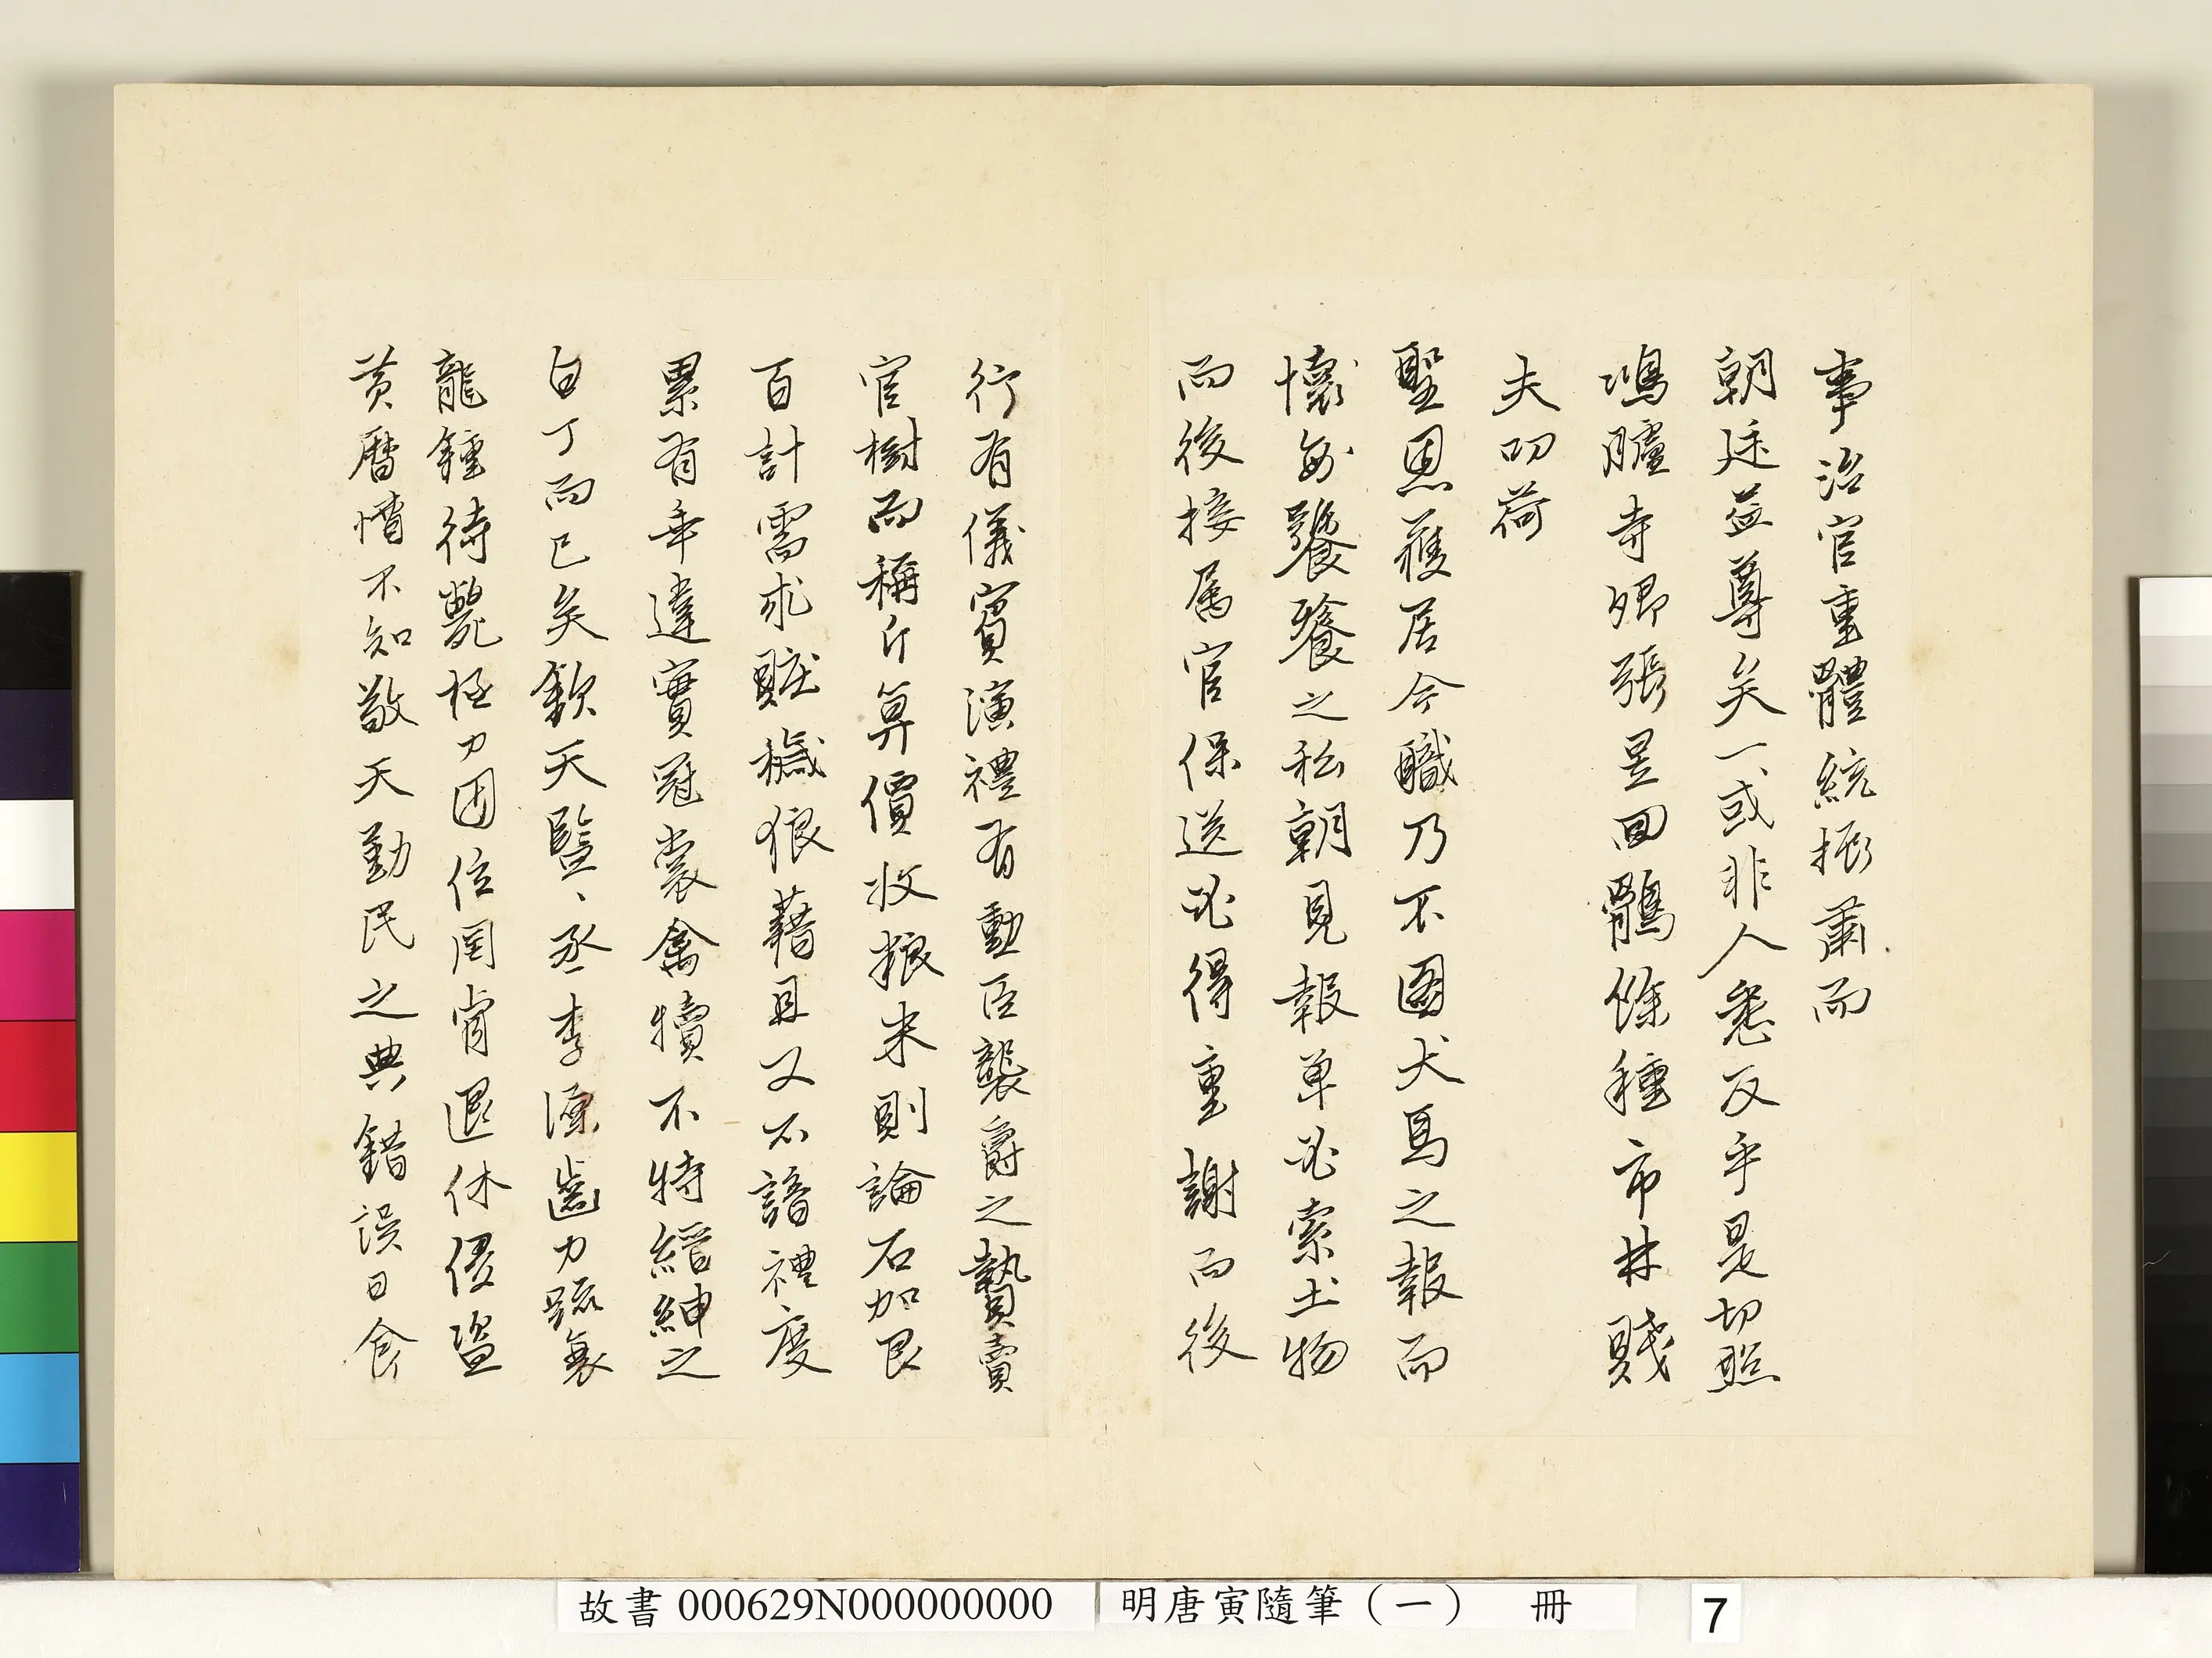 事治官重體統振肅而
朝廷益尊矣一或非人悉反乎是切照
鴻臚寺卿張昱回鶻餘種市井賤
夫叨荷
聖恩獲居今職乃不圖犬馬之報而
懷每饕餮之私朝見報單必索土物
而後接屬官保送必得重謝而後
行有儀賓演禮有勳臣襲爵之贄賣
官樹而稱斤算價收粮米則論石加艮
百計需求賍穢狼藉且又不諳禮度
累有乖違實冠裳禽犢不特縉紳之
白丁而已矣欽天監、丞李源齒力疏衰
龍鍾待斃極力固位罔肯退休侵盜
黃曆懵不知敬天勤民之典錯誤日食
故書000629N000000000
明唐寅隨筆（一） 冊
7